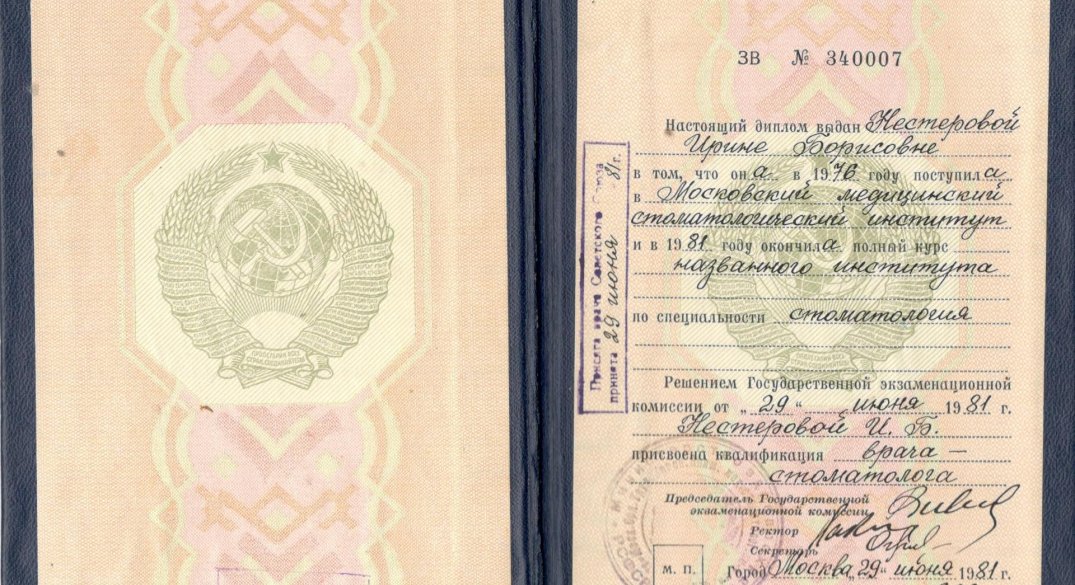 ПРОЛЕТАРИИ ВСЕХ
СТРАН, СОЕДИНЯЙТЕСЬ!
ЗВ № 340007
Настоящий диплом выдан Нестеровой
Ирине Борисовне
в том, что она в 1976 году поступила
в Московский медицинский
стоматологический институт
и в 1981 году окончила полный курс
названного института
по специальности стоматология
Решением Государственной экзаменационной
комиссии от „29“ июня 1981 г.
Нестеровой И. Б.
присвоена квалификация врача –
стоматолога
Председатель Государственной
экзаменационной комиссии
Ректор
Секретарь
М. П.
Город Москва „29“ июня 1981 г.
Присяга врача Советского Союза
принята 29 июня 81 г.